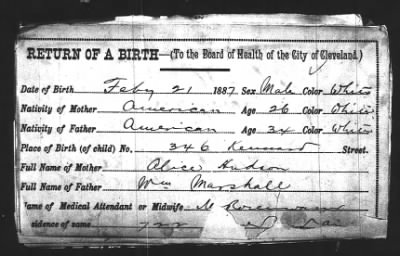 RETURN OF A BIRTH—(To the Board of Health of the City of Cleveland.)
Date of Birth Feby 21 1887 Sex Male Color White
Nativity of Mother American Age 26 Color White
Nativity of Father American Age 34 Color White
Place of Birth (of child) No. 346 Kennard Street.
Full Name of Mother Alice Hudson
Full Name of Father Wm Marshall
Name of Medical Attendant or Midwife M
sidence of same